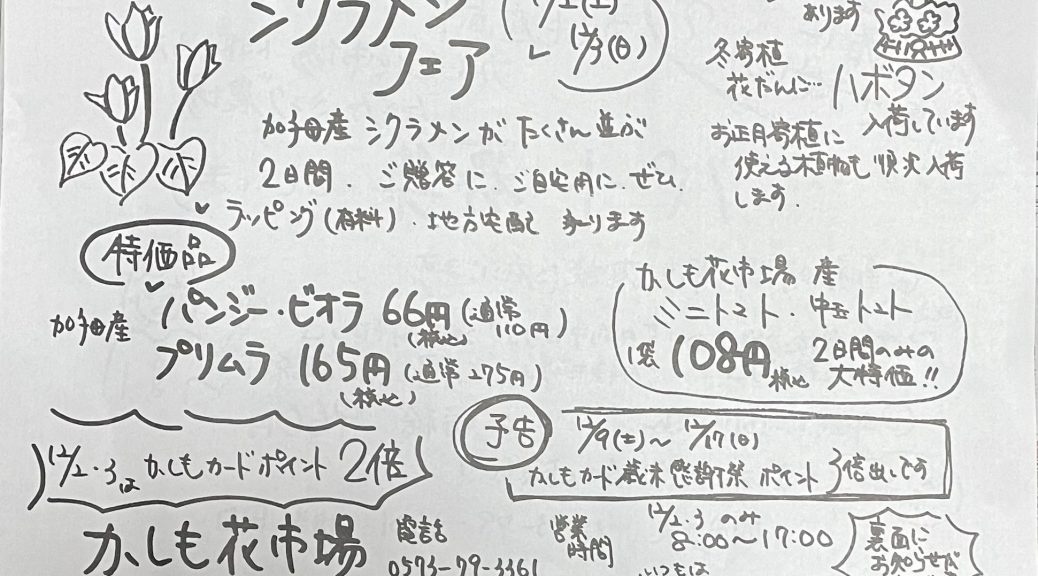 シクラメン
フェア
12/2(土)
12/3(日)
加子母産 シクラメンが たくさん並ぶ
2日間．ご贈答に．ご自宅用に．ぜひ．
ラッピング(有料)．地方宅配 承ります
あります
冬寄植
花だんに… ハボタン
入荷しています
お正月寄植に
使える植物も 順次入荷
します．
特価品
加子母産 パンジー・ビオラ 66円(税込)(通常110円)
プリムラ 165円(税込)(通常275円)
かしも花市場 産
ミニトマト・中玉トマト
1袋 108円税込 2日間のみの
大特価!!
12/2・3は かしもカードポイント 2倍
予告 12/9(土)～12/17(日)
かしもカード歳末感謝祭 ポイント 3倍出しです
かしも花市場
電話
0573-79-3361
営業
時間
12/2・3 のみ
8:00～17:00
いつもは
裏面に
お知らせが